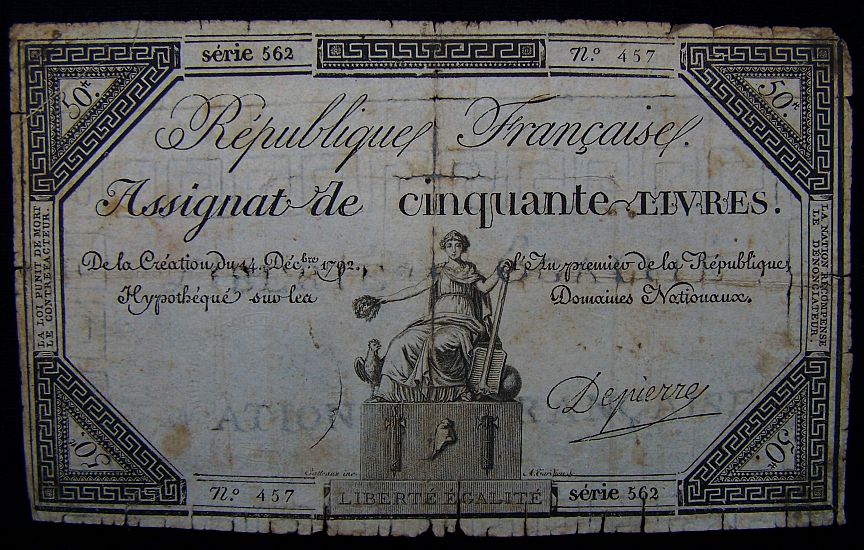 série 562
N.o 457
50tt
50tt
République Française.
Assignat de cinquante LIVRES.
De la Création du 14. Décbre 1792. l'An premier de la République
Hypothéqué sur les Domaines Nationaux.
LA LOI PUNIT DE MORT
LE CONTREFACTEUR.
LA NATION RÉCOMPENSE
LE DÉNONCIATEUR.
Depierre
NATION FRANÇAISE
50tt
50tt
Gatteaux inv.
N.o 457
LIBERTÉ ÉGALITÉ
série 562